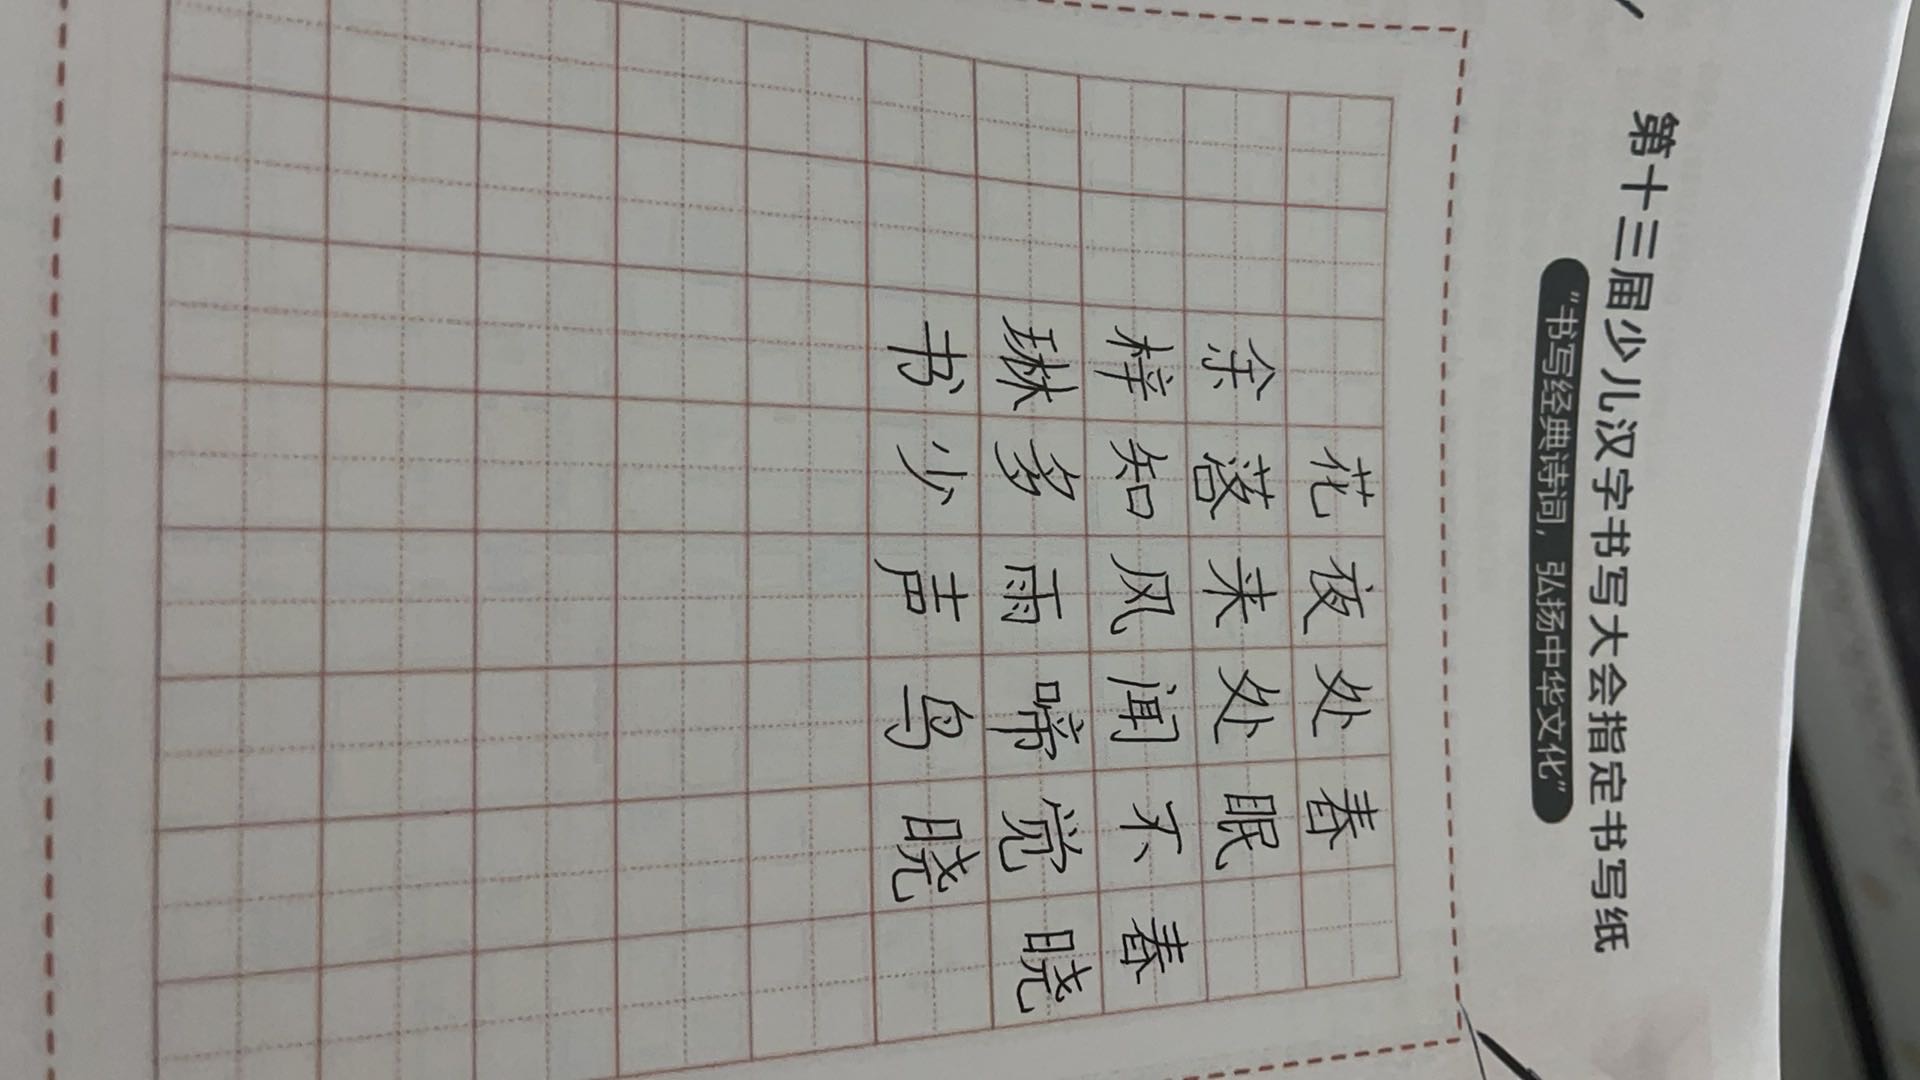 第十三届少儿汉字书写大会指定书写纸
“书写经典诗词，弘扬中华文化”
春晓
春眠不觉晓
处处闻啼鸟
夜来风雨声
花落知多少
余梓琳书